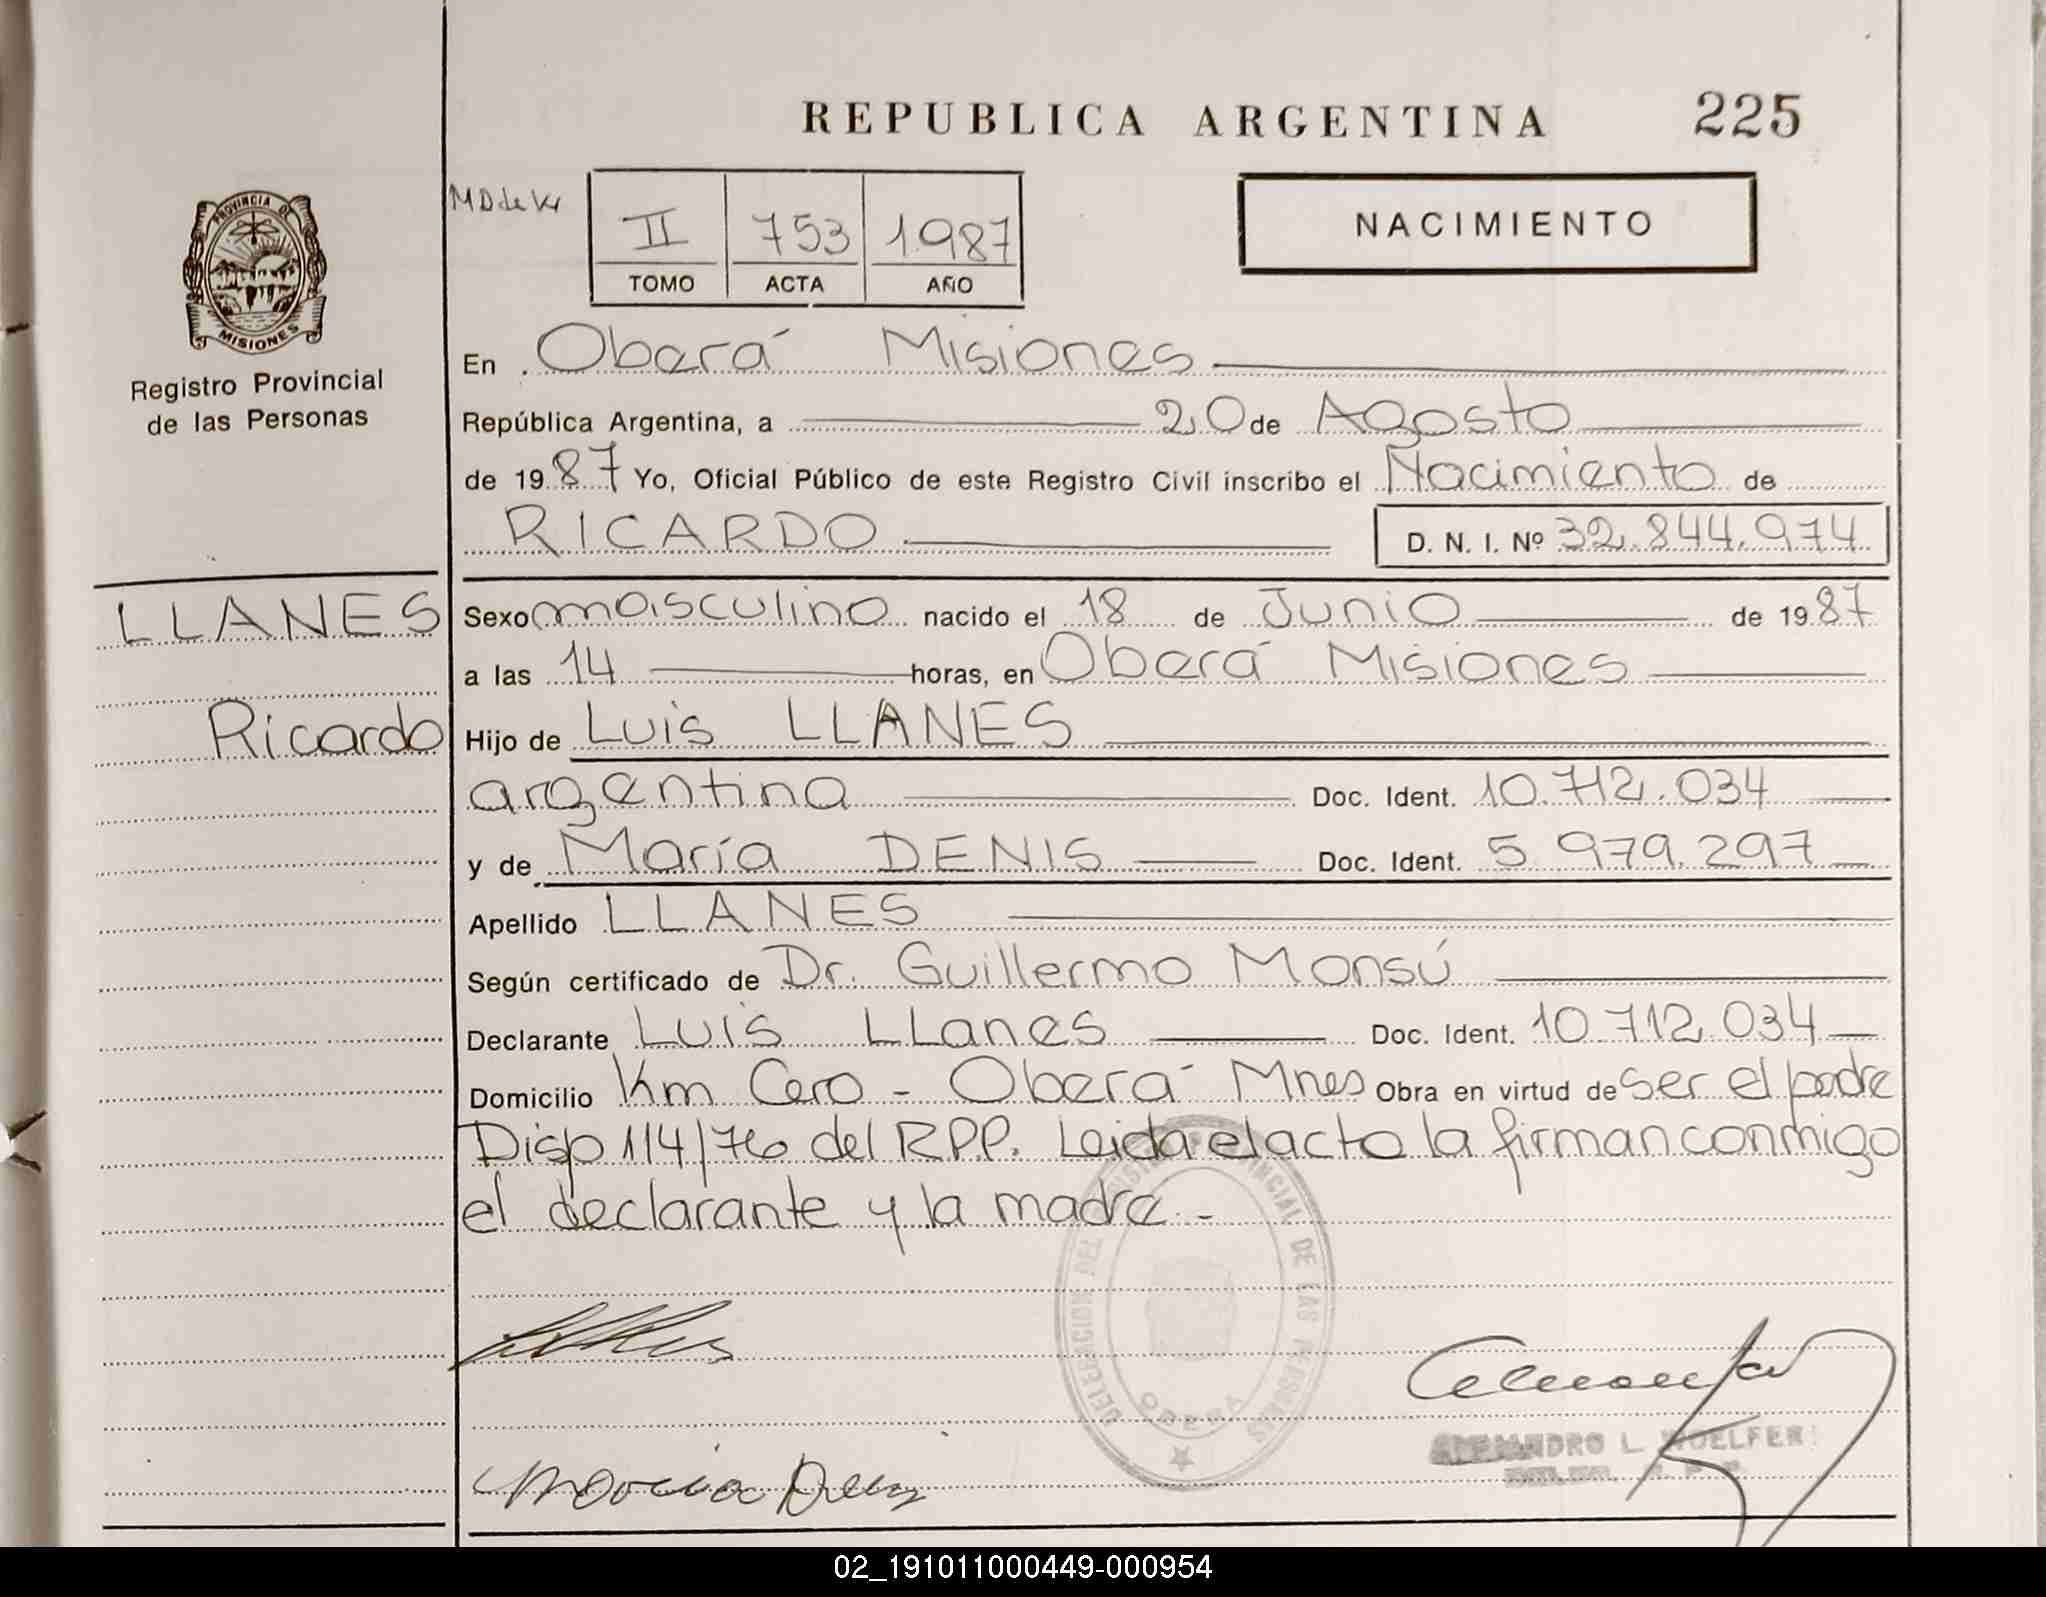 REPUBLICA ARGENTINA 225
MD de Kr
II 753 1987
TOMO ACTA AÑO
NACIMIENTO
PROVINCIA DE
MISIONES
Registro Provincial
de las Personas
En Oberá Misiones
República Argentina, a 20 de Agosto
de 1987 Yo, Oficial Público de este Registro Civil inscribo el Nacimiento de
RICARDO D. N. I. Nº 32.844.974
LLANES
Ricardo
Sexo masculino nacido el 18 de Junio de 1987
a las 14 horas, en Oberá Misiones
Hijo de Luis LLANES
argentina Doc. Ident. 10.712.034
y de María DENIS Doc. Ident. 5.979.297
Apellido LLANES
Según certificado de Dr. Guillermo Monsú
Declarante Luis LLanes Doc. Ident. 10.712.034
Domicilio Km Cero - Oberá Mnes Obra en virtud de ser el padre
Disp 114/76 del RPP. Leida el acto la firman conmigo
el declarante y la madre.-
DELEGACION DEL REGISTRO PROVINCIAL DE LAS PERSONAS
OBERA
Maria Denis
ALEJANDRO L. WOELFER
02_191011000449-000954